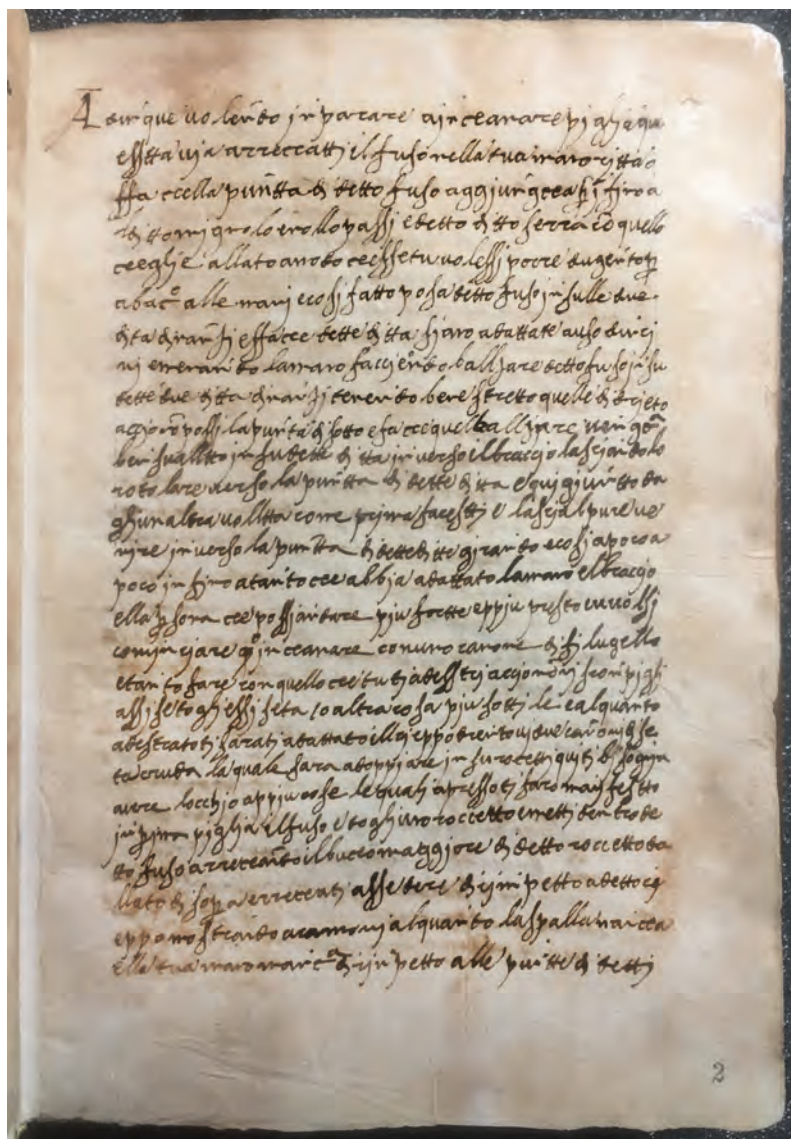 Adunque volendo inparare a incannare piglia que
essta via arreccatti il fuso nella tua mano ritta e
ffa cce lla puntta di detto fuso aggiungcea insino a
dito mignolo e nollo passi e detto dito serra cò quello
cce egli e allato a modo cce sse tu volessi porre dugento per
abaco alle mani e cosi fatto posa detto fuso in sulle due
dita dinanzi e ffa cce dette dita siano adattate a uso
menando la mano faccendo ballzare detto fuso in su
dette due dita dinanzi tenendo bene stretto quelle di drieto
accio non possi la punta di sotto e fa cce quello ballzare venga
ben su alltto in su dette dita inverso il braccio lasciandolo
rotolare verso la puntta di dette dita e qui giuntto da
gli un altra volltta come prima facessti e lascialo pure ve
nire inverso la puntta di dette dite girando e cosi a poco a
poco insino a tanto cce abbia adattato la mano el braccio
ella persona cce possi andare piu fortte e ppiu presto e vuolsi
cominciare incannare con uno canone di filugello
e tanto fare con quello cce tu ti adesstri accio non isconpigli
assi se togliessi seta o altra cosa piu sottile e alquanto
adestrato ti sarai adattato il ceppo drentovi due canoni di se
ta cruda la quale sara adoppiare in su rocetti qui ti bisogna
avere locchio a ppiu cose le quali apresso ti faro manifestto
in prima piglia il fuso e togli uno roccetto e metti dentro de
tto fuso arrecando il buco maggiore di detto roccetto da
llato di sopra e rrecati assedere di inpetto a detto ce
ppo mostrando a canoni alquanto la spalla manca
e lla tua mano manca di inpetto alle puntte di detti
2